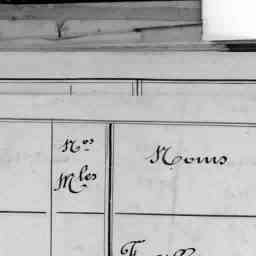 Nos
Mles
Noms